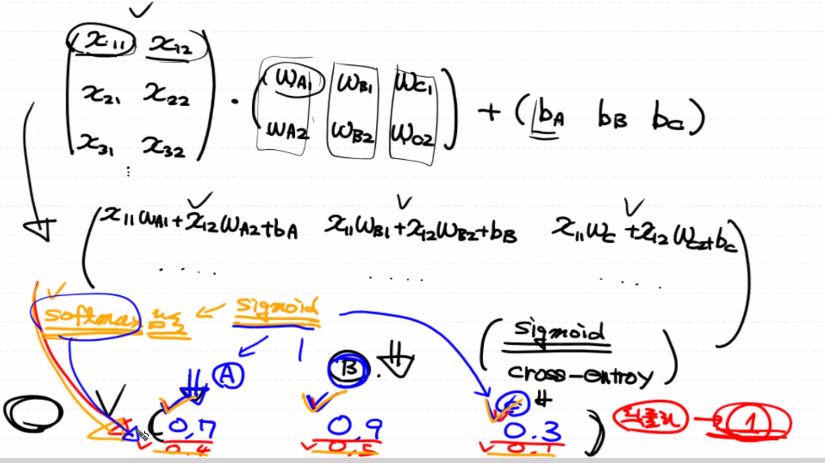 x₁₁ x₁₂
x₂₁ x₂₂
x₃₁ x₃₂
⋮
·
w_A1 w_B1 w_C1
w_A2 w_B2 w_C2
+ (b_A b_B b_C)
x₁₁w_A1+x₁₂w_A2+b_A x₁₁w_B1+x₁₂w_B2+b_B x₁₁w_C+x₁₂w_C2+b_C
.... .... ....
softmax ← sigmoid
(sigmoid
cross-entroy)
A B C
(0.7 0.9 0.3)
0.4 0.5 0.1
→ 1